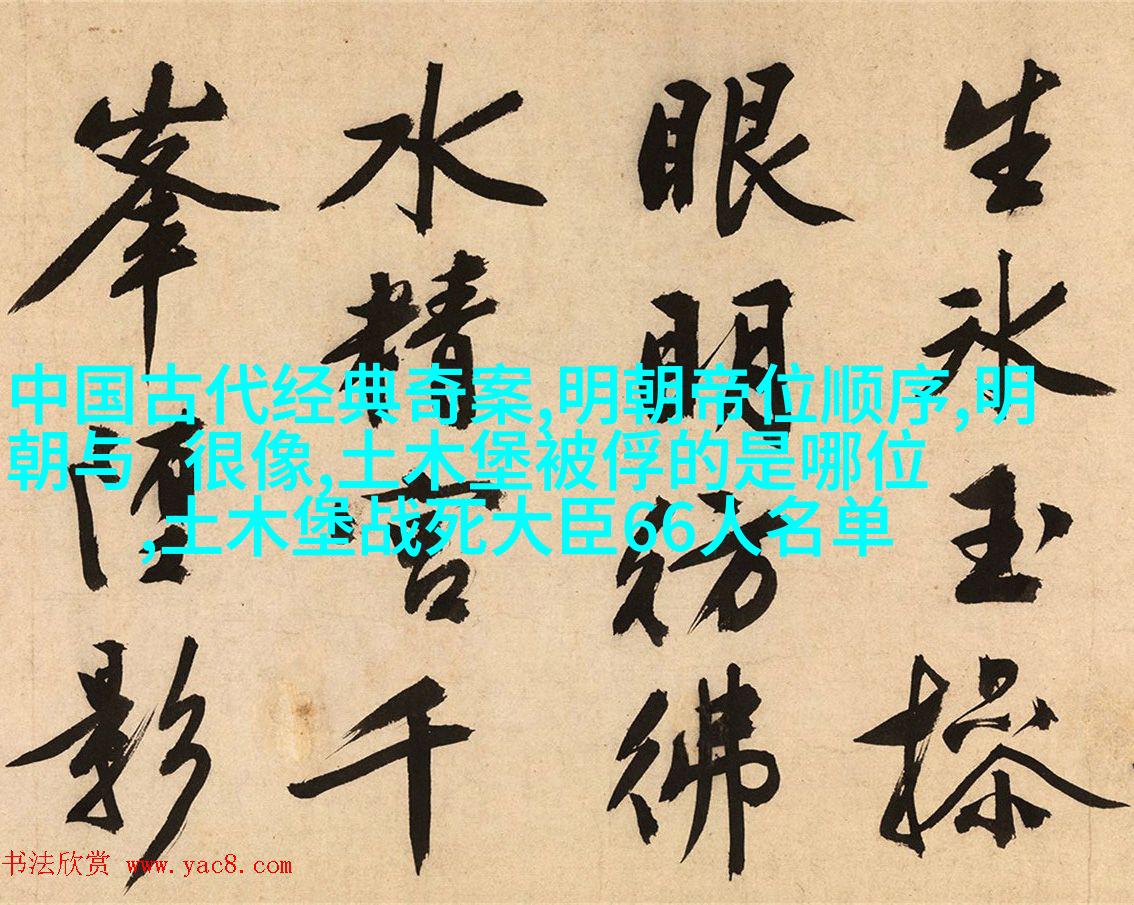 中国古代经典奇案,明朝帝位顺序,明
朝与 很像,土木堡被俘的是哪位
,土木堡战死大臣66人名单
生冰玉操
眼明彷彿
水精宫千
峯影
书法欣赏 www.yac8.com